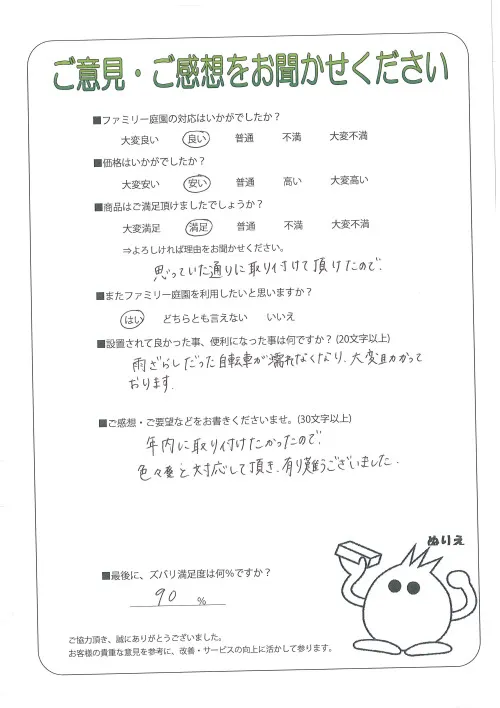 ご意見・ご感想をお聞かせください
■ファミリー庭園の対応はいかがでしたか？
大変良い 良い 普通 不満 大変不満
■価格はいかがでしたか？
大変安い 安い 普通 高い 大変高い
■商品はご満足頂けましたでしょうか？
大変満足 満足 普通 不満 大変不満
⇒よろしければ理由をお聞かせください。
思っていた通りに取り付けて頂けたので。
■またファミリー庭園を利用したいと思いますか？
はい どちらとも言えない いいえ
■設置されて良かった事、便利になった事は何ですか？(20文字以上)
雨ざらしだった自転車が濡れなくなり、大変助かって
おります。
■ご感想・ご要望などをお書きくださいませ。(30文字以上)
年内に取り付けたかったので、
色々と対応して頂き、有り難うございました。
ぬりえ
■最後に、ズバリ満足度は何％ですか？
90 %
ご協力頂き、誠にありがとうございました。
お客様の貴重な意見を参考に、改善・サービスの向上に活かして参ります。